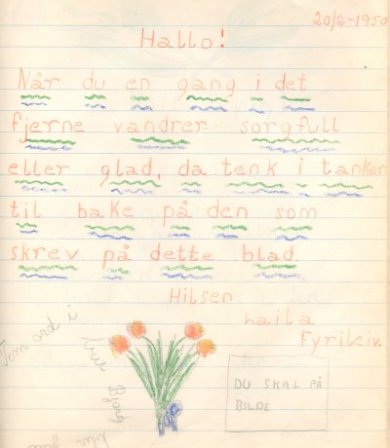 20/2-1950
Hallo!
Når du en gang i det
fjerne vandrer sorgfull
eller glad, da tenk i tanker
til bake på den som
skrev på dette blad
Hilsen
Laila
Fyrileiv.
Fem ord i
DU SKAL PÅ
BILDE